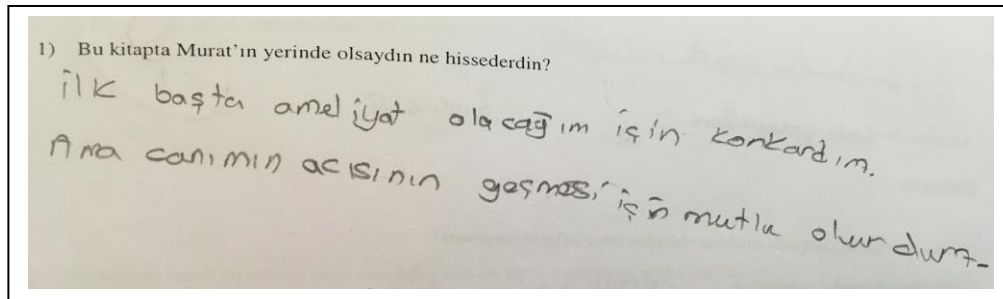 1) Bu kitapta Murat'ın yerinde olsaydın ne hissederdin?
ilk başta ameliyat olacağım için korkardım.
Ama canımın acısının geçmesi için mutlu olurdum.